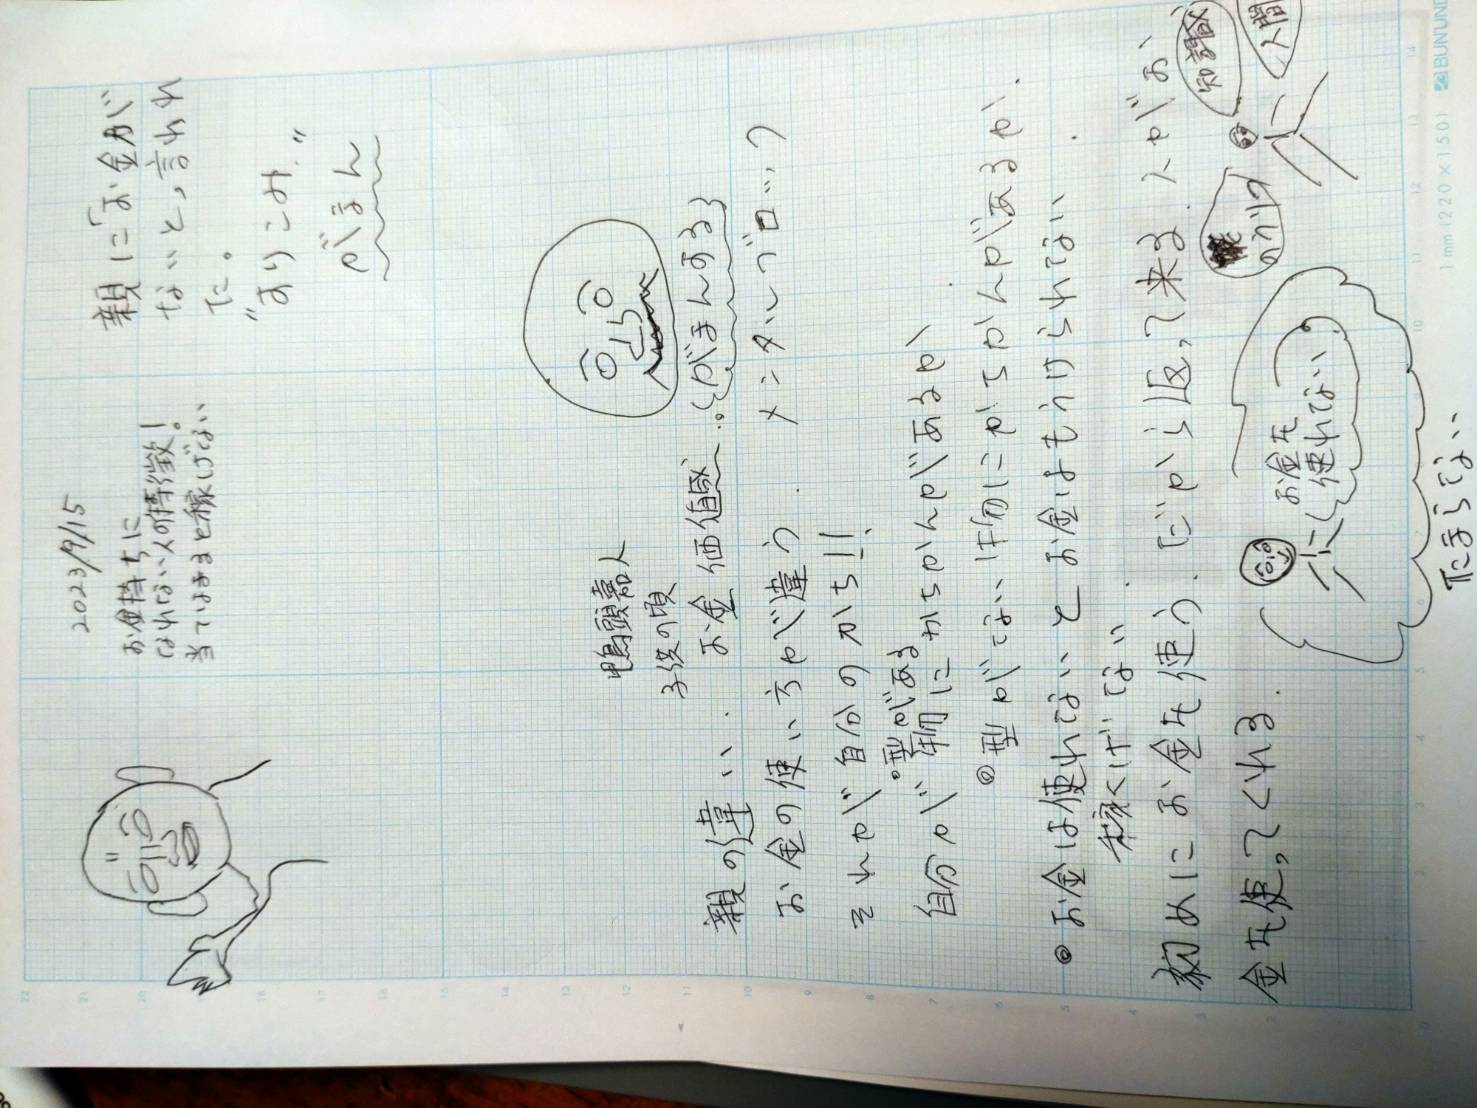 2023/9/15
お金持ちに
なれない人の特徴!
当てはまると稼げない
親に「お金が
ないと、言われ
た。
"ありこみ"
がまん
鴨頭嘉人
子供の頃
親の違い. お金価値感….{がまんする}
お金の使い方が違う. メンタルブロック
それが自分のかち!!
・型がある
自分が物にかちかんがあるか
◎型がない物にかちかんがあるか.
◎お金は使れないとお金はもうけられない.
稼くげない.
初めにお金を使う. だから返って来る. 人がお
金を使ってくれる.
知識
人間
のがりけ
お金を
使れない
たまらない
1mm(220×150) BUN'UND